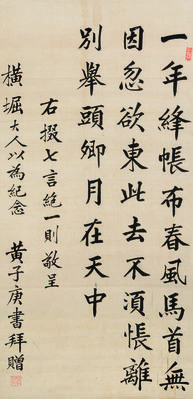 一年絳帳布春風馬首無
因忽欲東此去不須悵離
別舉頭鄉月在天中
右掇七言絕一則敬呈
橫堀大人以為紀念
黃子庚書拜贈